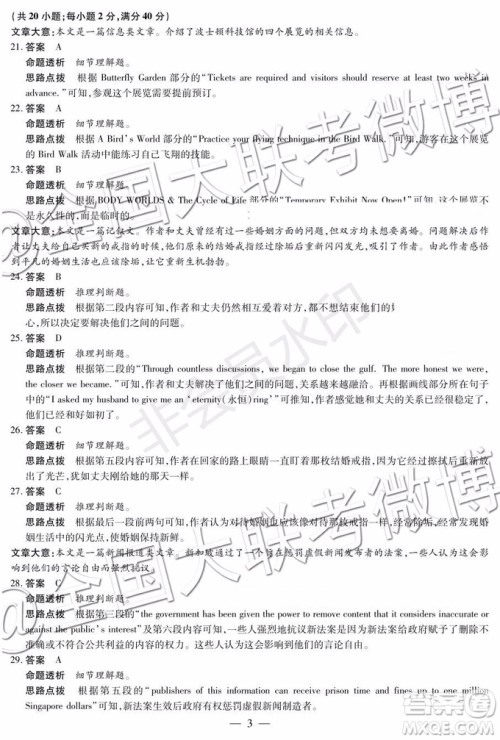 (共20小题;每小题2分,满分40分)
文章大意:本文是一篇信息类文章。介绍了波士顿科技馆的四个展览的相关信息。
21. 答案 A
命题透析 细节理解题。
思路点拨 根据 Butterfly Garden 部分的“Tickets are required and visitors should reserve at least two weeks in
advance.”可知,参观这个展览需要提前预订。
22. 答案 A
命题透析 细节理解题。
思路点拨 根据 A Bird's World 部分的“Practice your flying technique in the Bird Walk.”可知,游客在这个展览
的 Bird Walk 活动中能练习自己飞翔的技能。
23. 答案 B
命题透析 细节理解题。
思路点拨 根据 BODY WORLDS & The Cycle of Life 部分的“Temporary Exhibit Now Open!”可知,这个展览不
是永久性的,而是临时的。
文章大意:本文是一篇记叙文。作者和丈夫曾经有一些婚姻方面的问题,但双方均未想要离婚。问题解决后作
者让丈夫给自己买新的戒指的时候,偶然看到以前的结婚戒指在污垢后重新闪闪发光,作者感悟
到平凡的婚姻生活也应该除垢,让它重新生机勃勃。
24. 答案 B
命题透析 推理判断题。
思路点拨 根据第二段内容可知,作者和丈夫仍然相互爱着对方,都不想结束他们的
心,所以决定要解决他们之间的问题。
25. 答案 D
命题透析 推理判断题。
思路点拨 根据第二段的“Through countless discussions, we began to close the gulf. The more honest we were,
the closer we became.”可知,作者和丈夫解决了他们之间的问题,关系越来越融洽。再根据画线部分所在句子
中的“I asked my husband to give me an ‘eternity(永恒)ring’”可推知,作者感觉她和丈夫的关系已经
和好如初了。
26. 答案 C
命题透析 细节理解题。
思路点拨 根据第五段内容可知,作者在回家的路上眼睛一直盯着那枚结婚戒指,感觉到它重新散放
出了光芒,犹如丈夫送给她的那天一样。
27. 答案 C
命题透析 推理判断题。
思路点拨 根据最后一段前两句可知,作者认为对待婚姻也应该像对待那枚戒指一样,要努力去发现婚
姻生活中的闪光点,使婚姻保持新鲜。
文章大意:本文是一篇新闻报道类文章。新加坡通过了一个旨在惩罚虚假新闻发布者的法案,一些人担心这会影
响到他们的言论自由而强烈抗议。
28. 答案 C
命题透析 推理判断题。
思路点拨 根据第三段的“the government has been given the power to remove content that it considers inaccurate or
against the public's interest”及第六段内容可知,一些人强烈地抗议新法案是因为新法案严厉打击了那些不实
或不符合公共利益的言论,他们担心这会影响到他们的言论自由。
29. 答案 A
命题透析 细节理解题。
思路点拨 根据第五段的“publishers of this information can receive prison time and fines of up to one million
Singapore dollars”可知,新法案生效后政府有权惩罚虚假新闻制造者。
— 3 —
@全国大联考微博
@全国大联考微博
非会员水印
答案圈
MXQE.COM